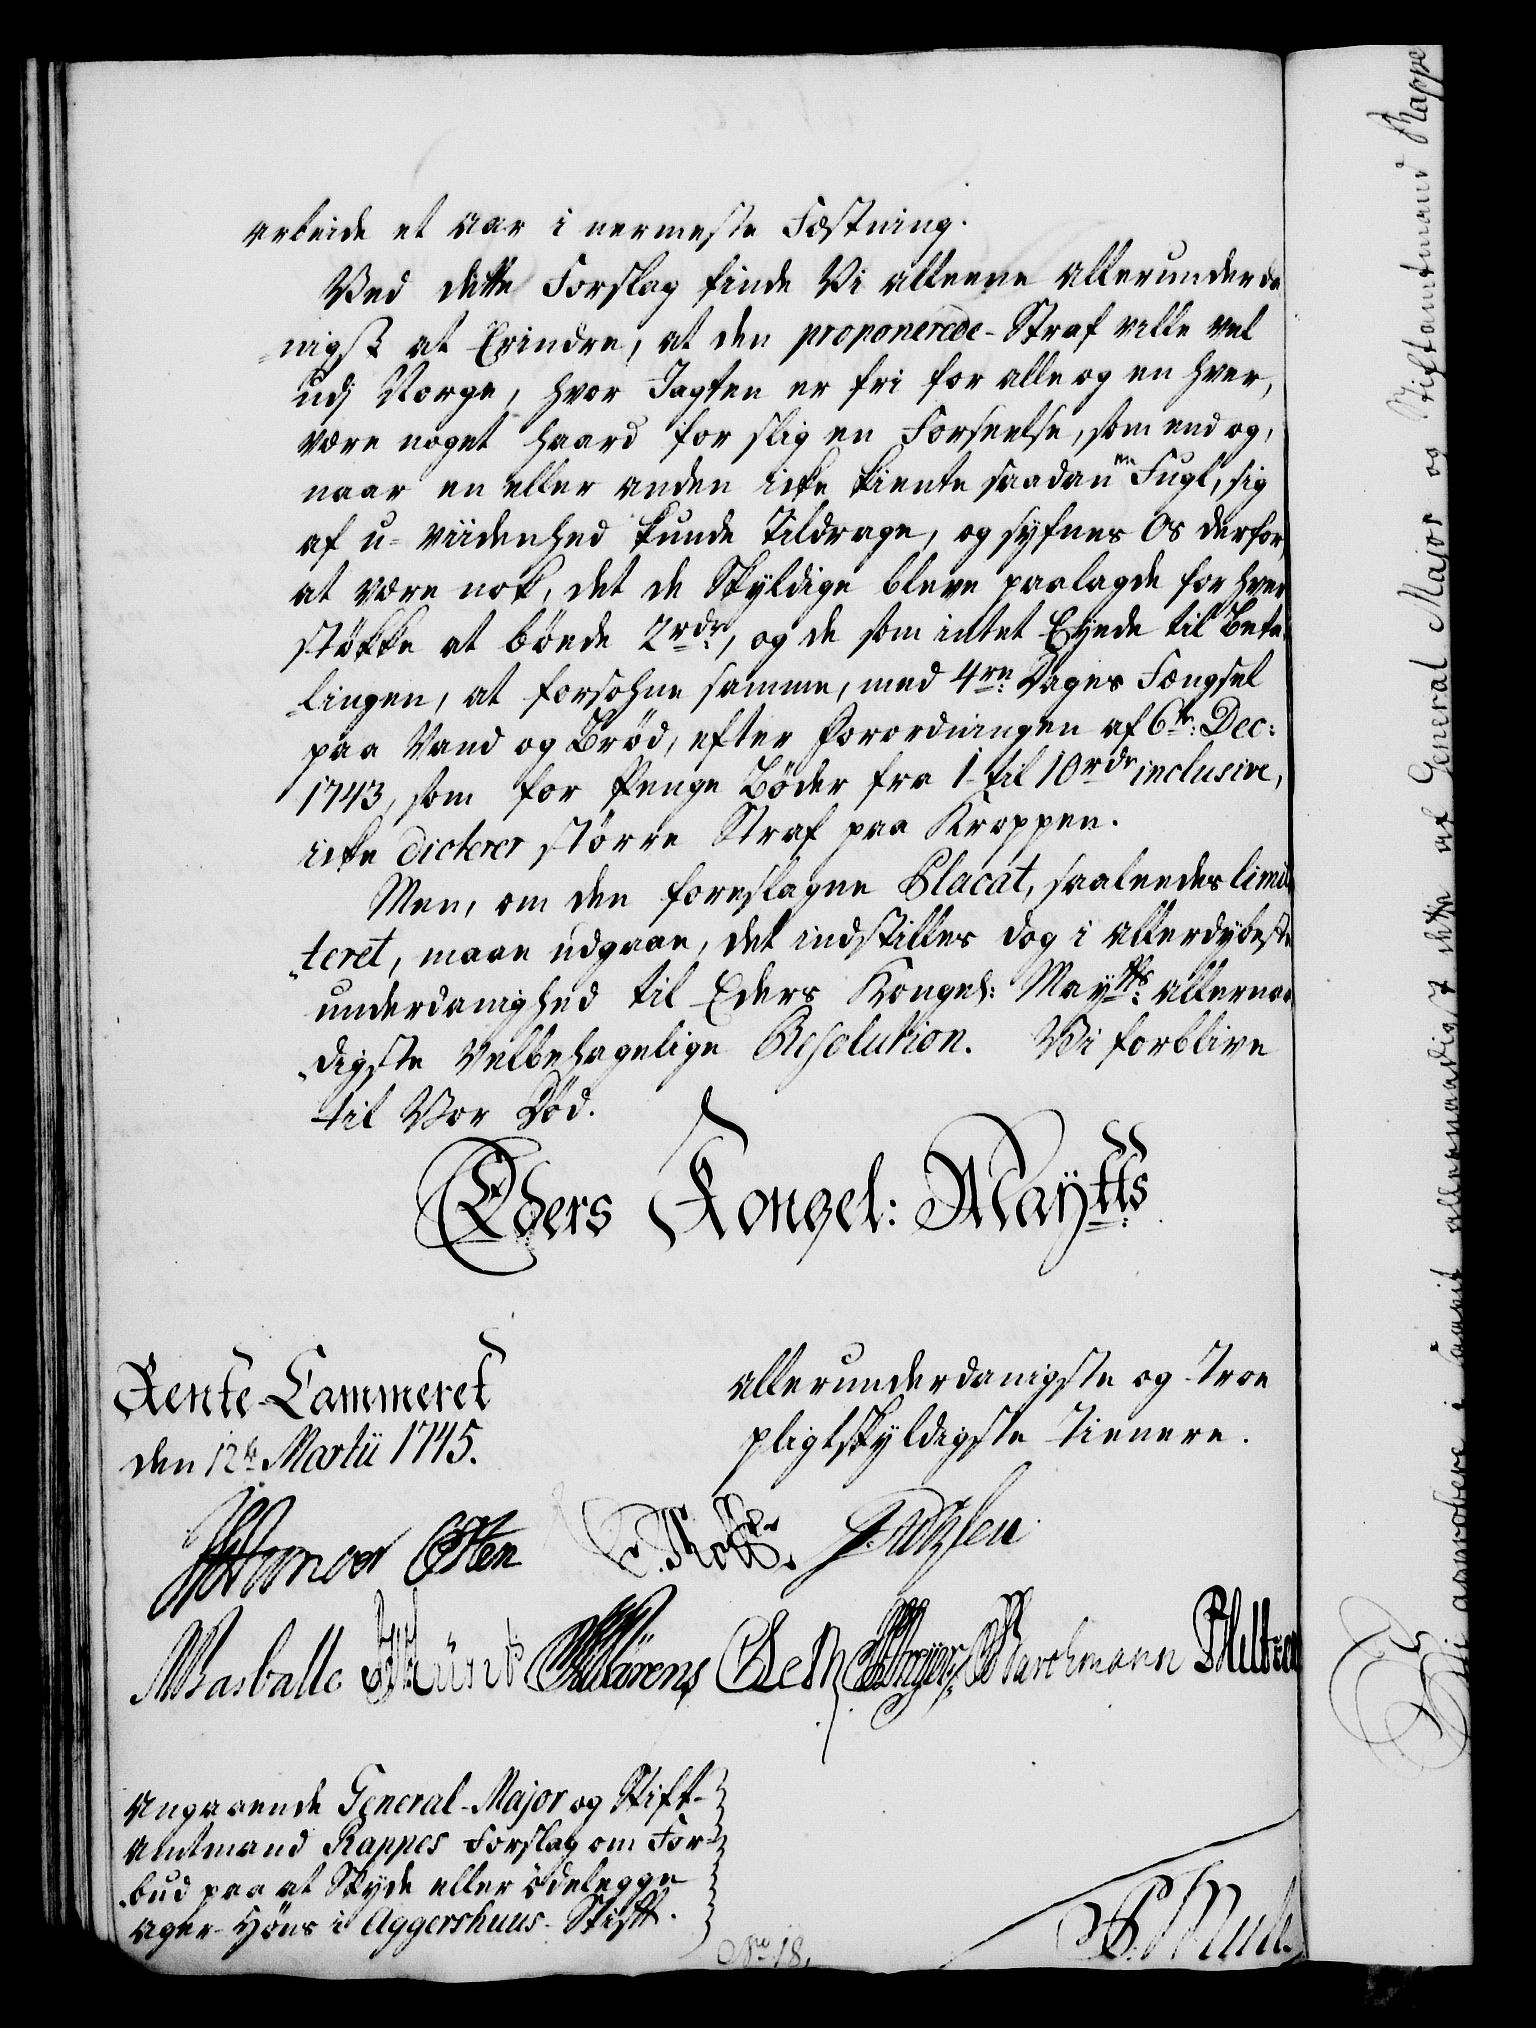 arbeide et aar i nermeste Fæstning.
Ved dette Forslag finde Vi alleene allerunderda
nigst at Erindre, at den proponerede Straf ville vel
udj Norge, hvor Jagten er fri for alle og en hver,
være noget haard for slig en Forseelse, som end og,
naar en eller anden icke kiente saadan Fugl, sig
af u-viidenhed kunde tildrage, og syfnes Os derfor,
at være nok, det de Skyldige bleve paalagde for hver
støkke at bøede 2 rdr, og de som intet Eyede til Beta
lingen, at forsohne samme, med 4re Dages Fængsel
paa Vand og Brød, efter Forordningen af 6te Dec:
1743, som for Penge Bøder fra 1 til 10 rdr inclusive,
icke dicterer større Straf paa Kroppen.
Men, om den foreslagne Placat, saaleedes limi
teret, maae udgaae, det indstilles dog i allerdybeste
underdanighed til Eders Kongel: Maytts allernaa
digste Velbehagelige Resolution. Vi forblive
til Vor Død.
Eders Kongel: Maytts
Rente-Cammeret
den 12te Martii 1745.
allerunderdanigste og troe
pligtskyldigste tienere.
Osten
Barchmann
Angaaende General-Major og Stift-
Amtmand Rappes Forslag om For-
bud paa at Skyde eller ödelegge
Ager-Höns i Aggershuus-Stift.
No 18.
Vi approbere i saavit allernaadigst dette af General Major og Stiftamtmand Rappe